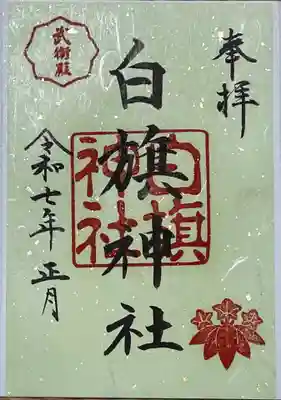 奉拝
白旗神社
白旗
神社
令和七年 正月
武衛殿